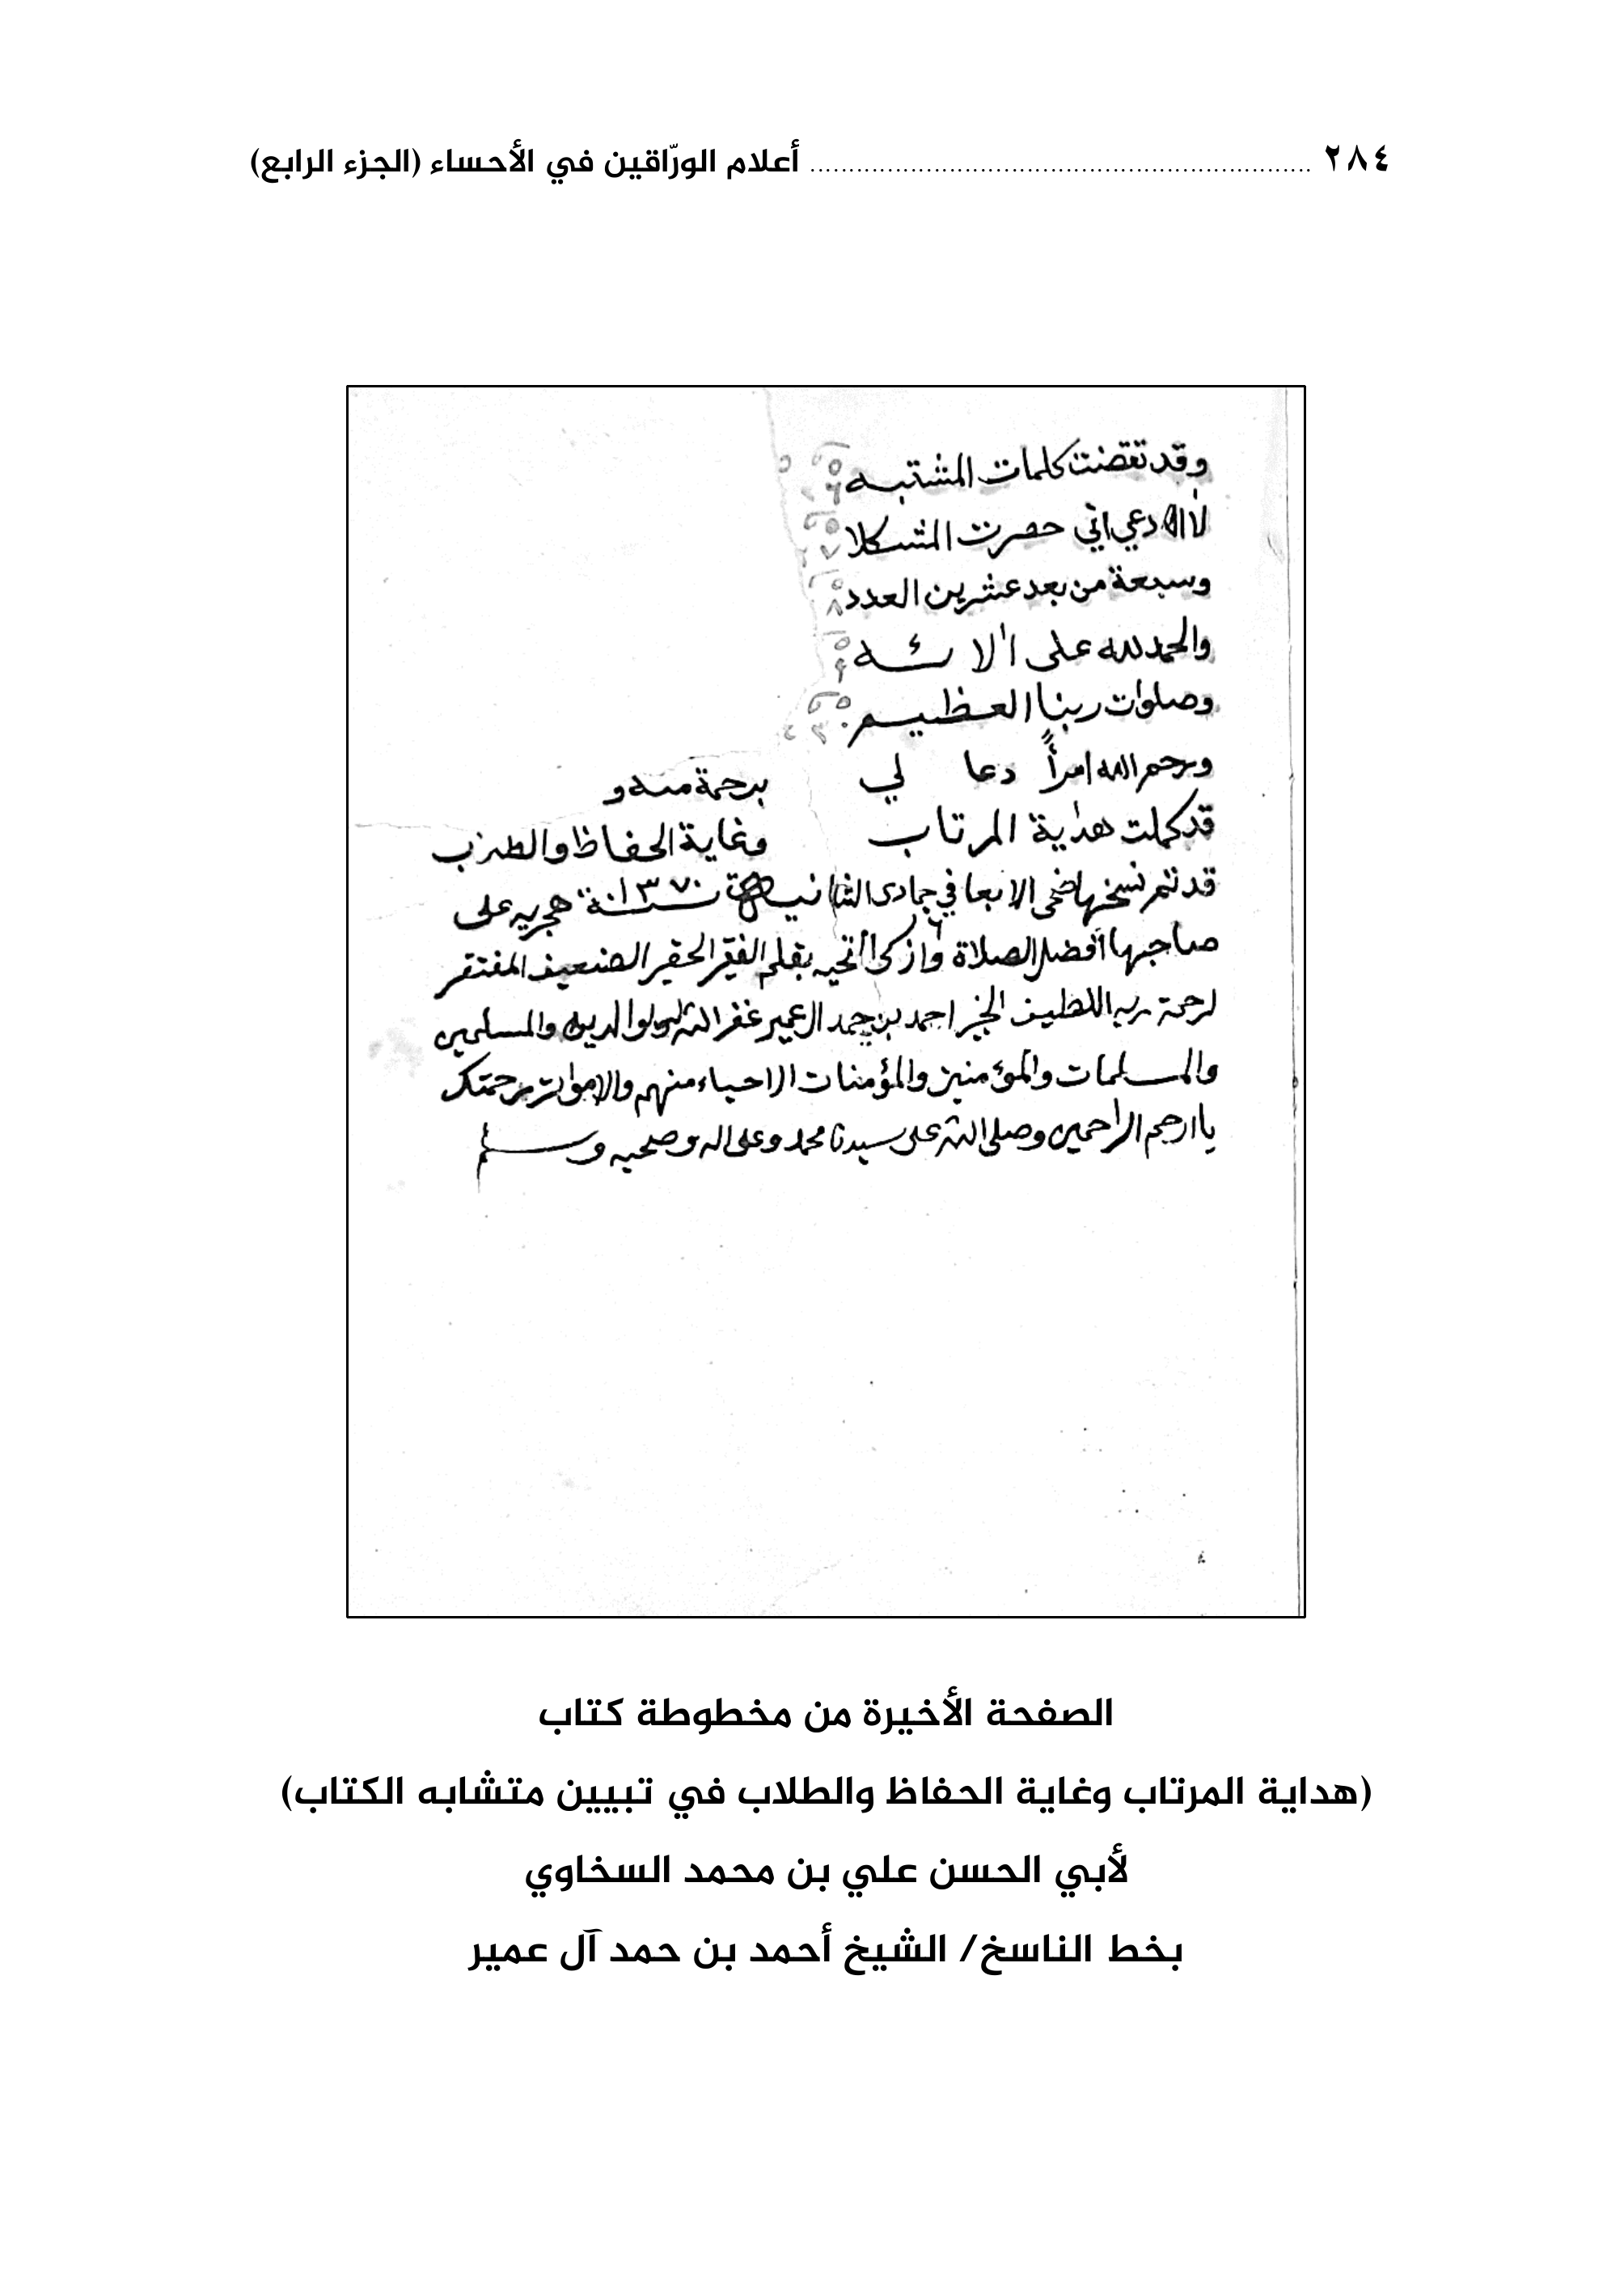 ٢٨٤ ................................................................ أعلام الورّاقين في الأحساء (الجزء الرابع)
وقد تقضت كلمات المشتبه
لا ادعي اني حصرت المشكلا
وسبعة من بعد عشرين العدد
والحمد لله على الائه
وصلوات ربنا العظيم
ويرحم الله امرأً دعا لي برحمة منه و
قد كملت هداية المرتاب وغاية الحفاظ والطلاب
قد تم نسخها ضحى الاربعا في جمادى الثانية سنة ١٣٧٠ هجريه على
صاحبها افضل الصلاة وازكى التحيه بقلم الفقير الحقير الضعيف المفتقر
لرحمة ربه اللطيف الخبير احمد بن حمد ال عمير غفر الله له ولوالديه والمسلمين
والمسلمات والمؤمنين والمؤمنات الاحياء منهم والاموات برحمتك
يا ارحم الراحمين وصلى الله على سيدنا محمد وعلى اله وصحبه وسلم
الصفحة الأخيرة من مخطوطة كتاب
(هداية المرتاب وغاية الحفاظ والطلاب في تبيين متشابه الكتاب)
لأبي الحسن علي بن محمد السخاوي
بخط الناسخ/ الشيخ أحمد بن حمد آل عمير